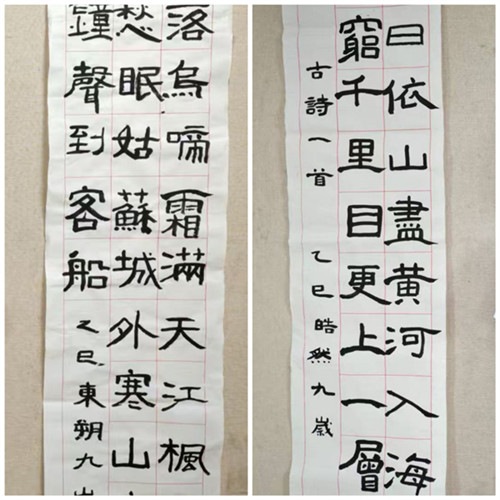 落烏啼霜滿天江楓
愁眠姑蘇城外寒山
鐘聲到客船
乙巳東朔九
日依山盡黃河入海
窮千里目更上一層
古詩一首 乙巳皓然九歲